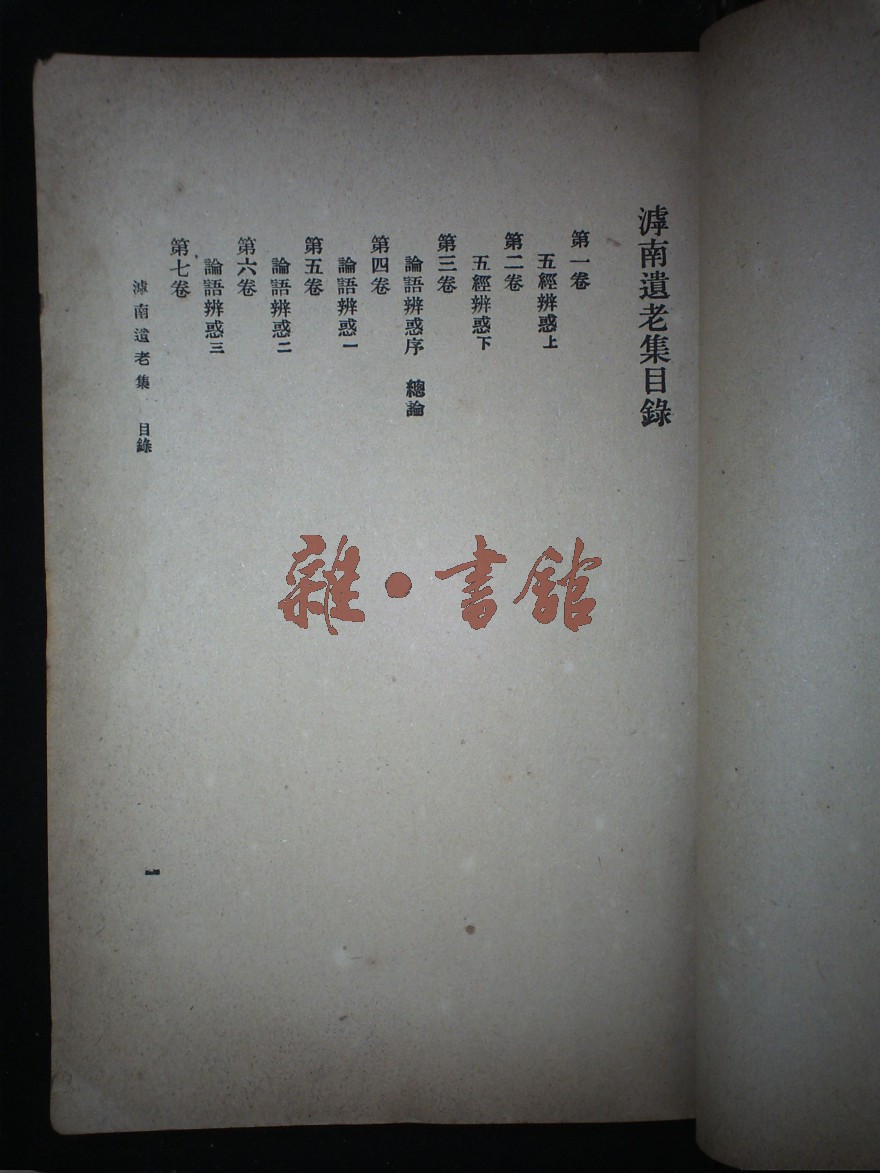 滹南遺老集目錄
第一卷
五經辨惑上
第二卷
五經辨惑下
第三卷
論語辨惑序 總論
第四卷
論語辨惑一
第五卷
論語辨惑二
第六卷
論語辨惑三
第七卷
滹南遺老集 目錄
一
雜·書館